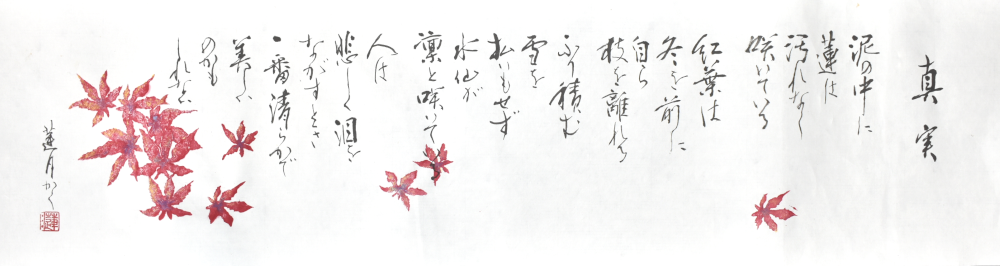 真実
泥の中に
蓮は
汚れなく
咲いている
紅葉は
冬を前に
自ら
枝を離れる
ふり積む
雪を
払いもせず
水仙が
凛と咲いて
人は
悲しく泪を
ながすとき
一番清らかで
美しい
のかも
しれない
蓮月かく